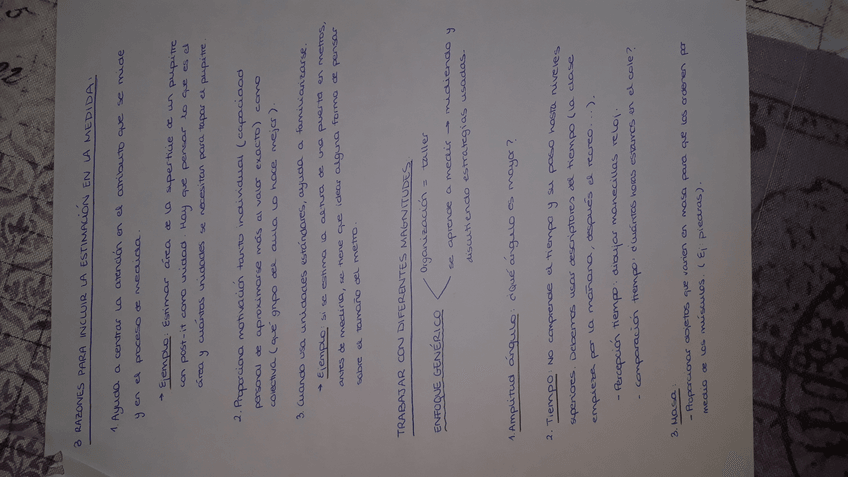 3 RAZONES PARA INCLUIR LA ESTIMACIÓN EN LA MEDIDA:
1. Ayuda a centrar la atención en el atributo que se mide
y en el proceso de medida.
→ Ejemplo: Estimar área de la superficie de un pupitre
con post-it como unidad. Hay que pensar lo que es el
área y cuántas unidades se necesitan para tapar el pupitre.
2. Proporciona motivación tanto individual (capacidad
personal de aproximarse más al valor exacto) como
colectiva (qué grupo del aula lo hace mejor).
3. Cuando usa unidades estándares, ayuda a familiarizarse.
→ Ejemplo: si se estima la altura de una puerta en metros,
antes de medirla, se tiene que idear alguna forma de pensar
sobre el tamaño del metro.
TRABAJAR CON DIFERENTES MAGNITUDES
ENFOQUE GENÉRICO
Organización = taller
se aprende a medir → midiendo y
discutiendo estrategias usadas.
1. Amplitud ángulo: ¿Qué ángulo es mayor?
2. Tiempo: No comprende el tiempo y su paso hasta niveles
superiores. Debemos usar descriptores del tiempo (la clase
empieza por la mañana, después el recreo...).
- Percepción tiempo: dibujar manecillas reloj.
- Comparación tiempo: ¿cuántas horas estamos en el cole?
3. Masa:
- Proporcionar objetos que varíen en masa para que los ordenen por
medio de los músculos. (Ej piedras).
5
22